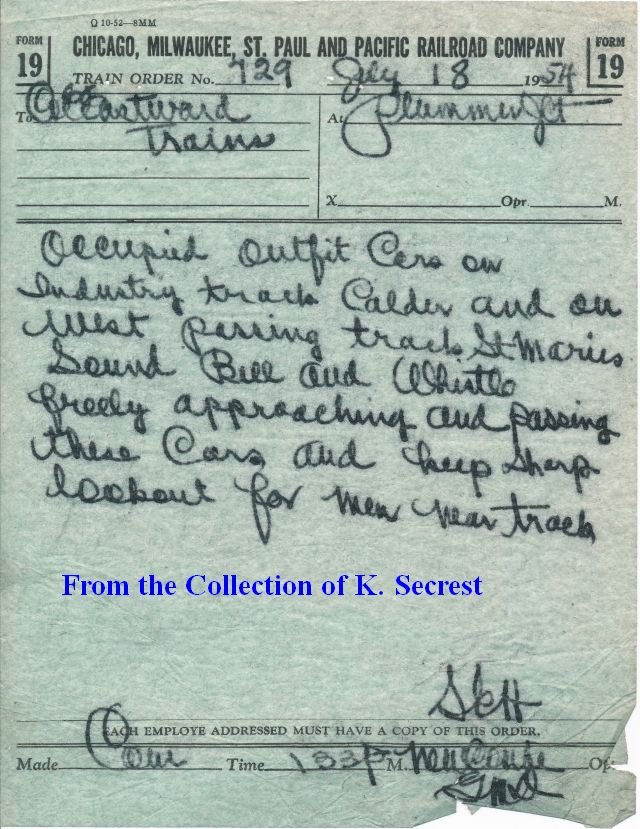 Q 10-52—8MM
FORM 19
CHICAGO, MILWAUKEE, ST. PAUL AND PACIFIC RAILROAD COMPANY
FORM 19
TRAIN ORDER No. 729 July 18 1954
To All Eastward
Trains
At Plummer Jct
X Opr. M.
Occupied Outfit Cars on
Industry track Calder and on
West passing track St Maries
Sound Bell and Whistle
freely approaching and passing
these Cars and keep sharp
lookout for men near track
From the Collection of K. Secrest
EACH EMPLOYE ADDRESSED MUST HAVE A COPY OF THIS ORDER.
Made Com Time 133P M. Opr.